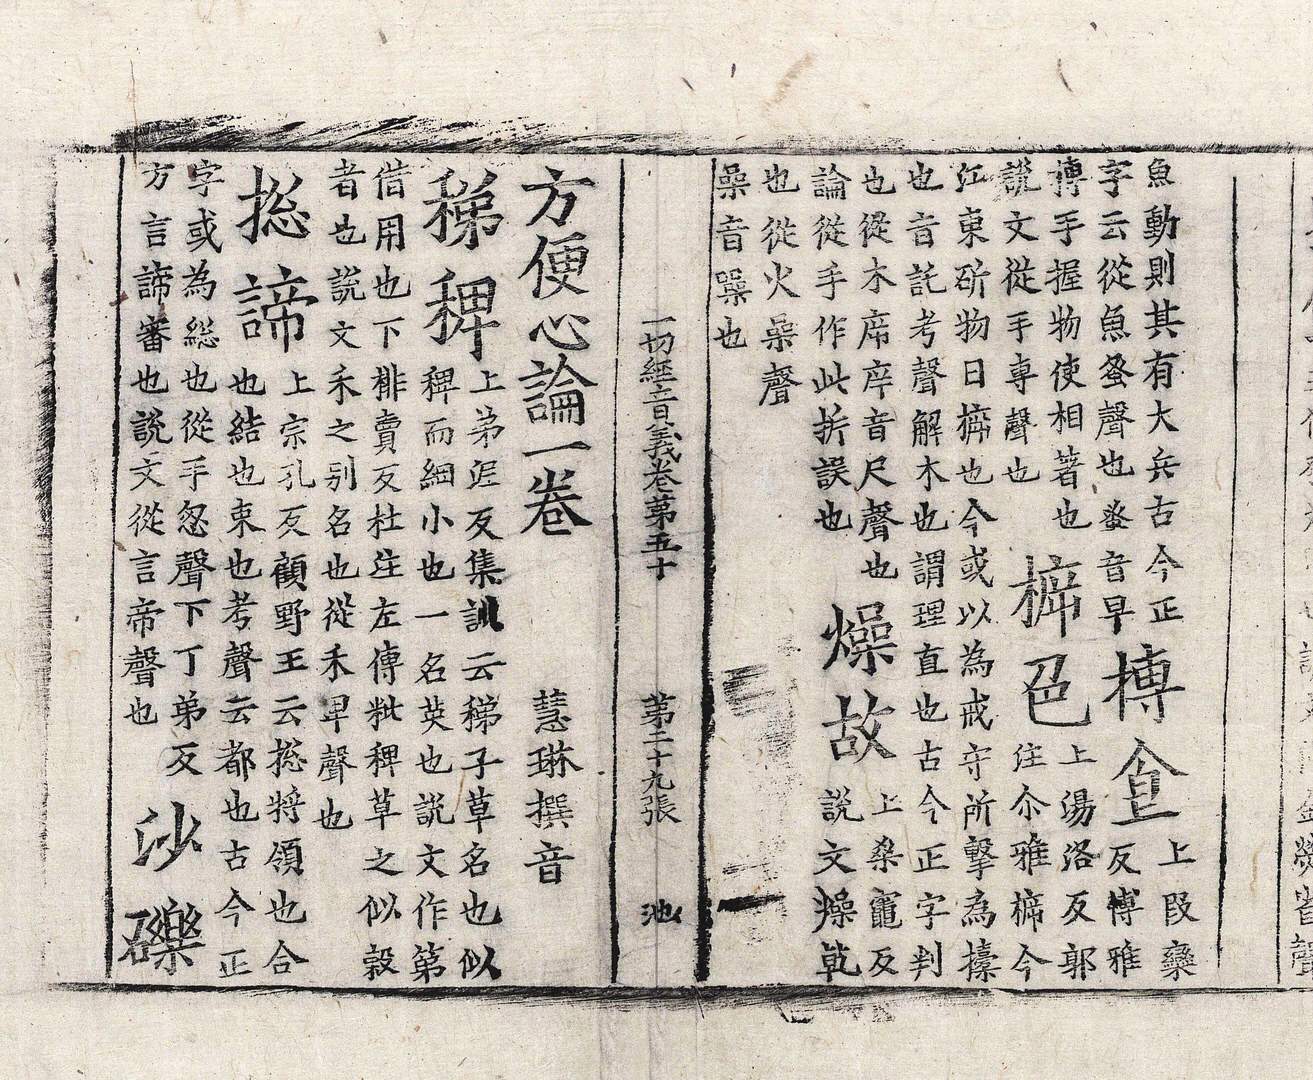 魚動則其有大兵古今正
字云從魚蚤聲也蚤音早
摶食
上段欒
反博雅
摶手握物使相著也
說文從手專聲也
㭊邑
上湯洛反郭
注尒雅㭊今
江東斫物曰㭊也今或以為戒守所擊為㯱
也音託考聲解木也謂理直也古今正字判
也從木㡿㡿音尺聲也
論從手作此拆誤也
燥故
上桒竈反
說文燥乹
也從火喿聲
喿音噪也
一切經音義卷第五十
第二十九張
池
方便心論一卷
慧琳撰音
稊稗
上弟泥反集訓云稊子草名也似
稗而細小也一名英也說文作第
借用也下排賣反杜注左傳粃稗草之似穀
者也說文禾之別名也從禾卑聲也
捴諦
上宗孔反顧野王云捴將領也合
也結也束也考聲云都也古今正
字或為総也從手怱聲下丁弟反
方言諦審也說文從言帝聲也
沙礫